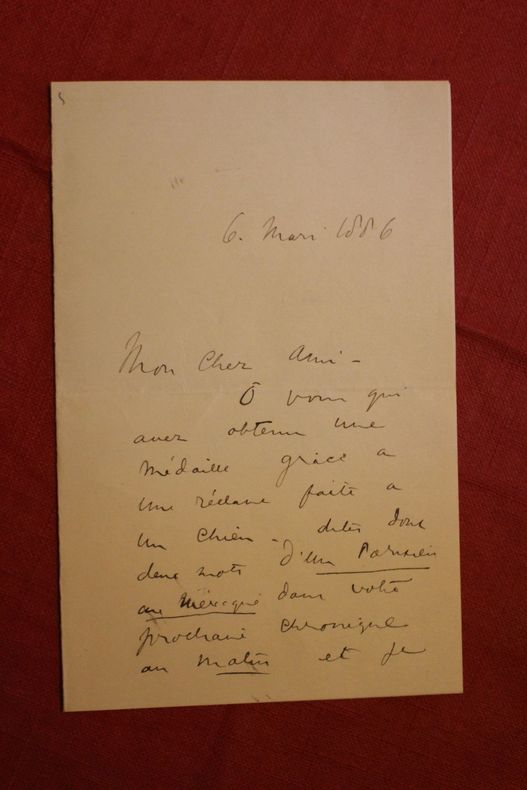 6. Mars 1886
Mon Cher Ami -
Ô vous qui
avez obtenu une
Médaille grâce a
une réclame faite a
un Chien - dites donc
deux mots d'Un Parisien
au Mexique dans votre
prochaine Chronique
au Matin et je